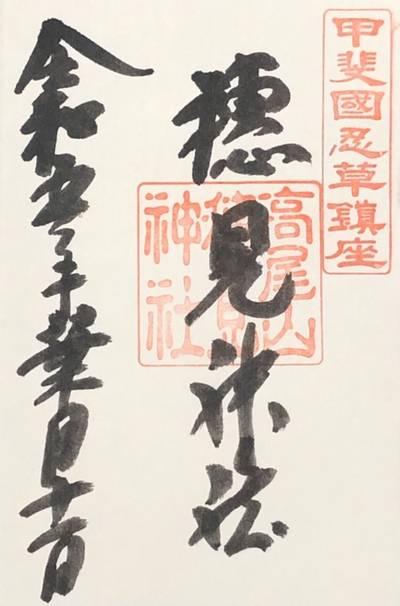 甲斐國忍草鎮座
高尾山
穗見
神社
穗見神社
令和五年葉月十一日